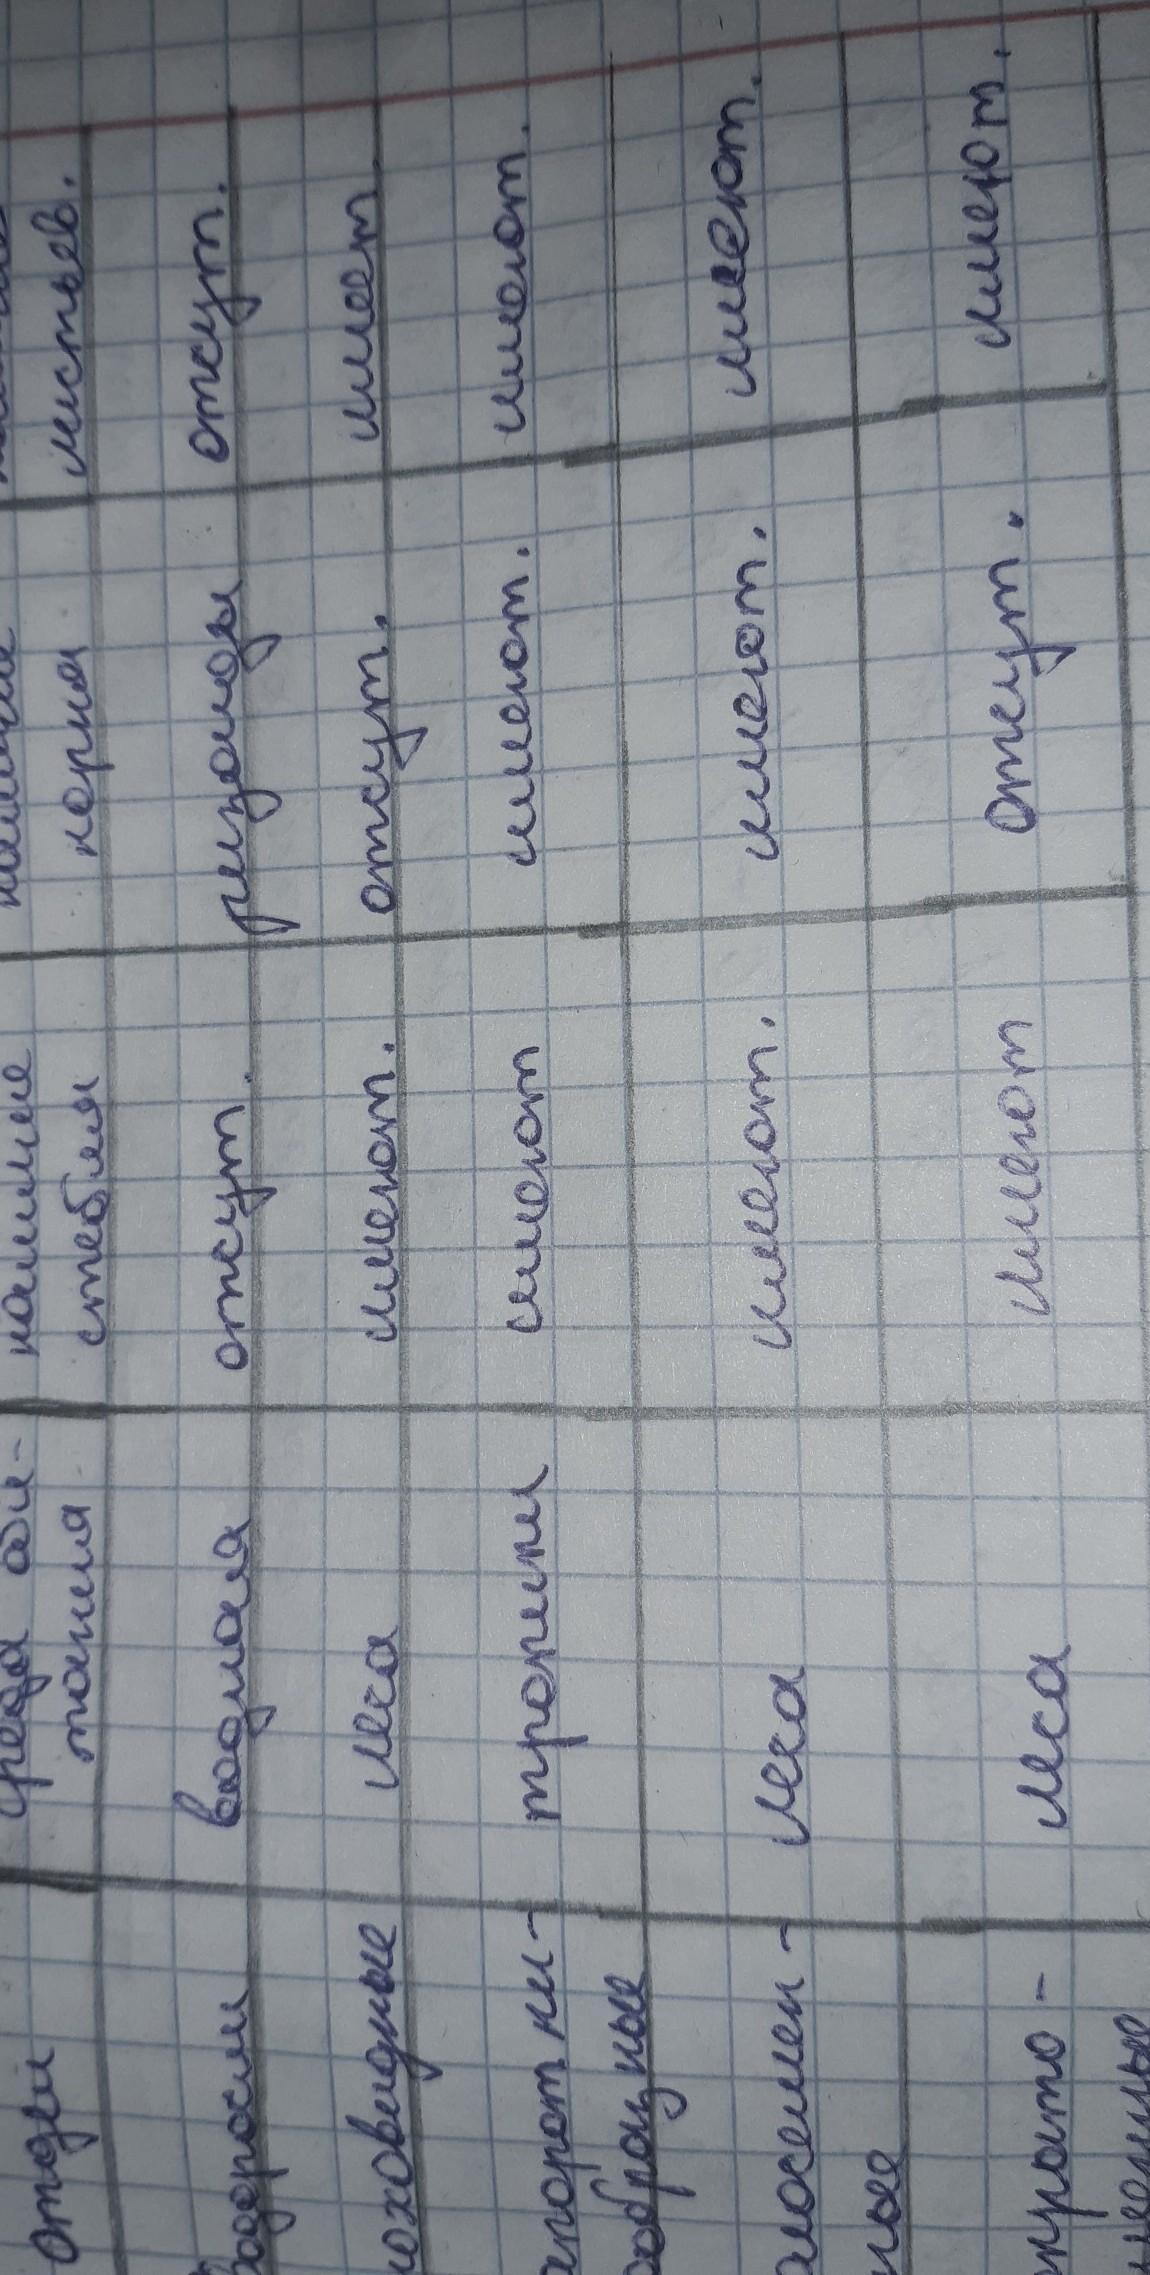 отдел
среда оби-
тания
наличие
стебля
наличие
корня
листьев.
водоросли
водная
отсут.
ризоиды
отсут.
моховидные
леса
имеют.
отсут.
имеет
апорот ни-
кообразные
тропики
имеют
имеют.
имеют.
лосемен-
ные
леса
имеют.
имеют.
имеют.
крыто-
менные
леса
имеют
отсут.
имеют.